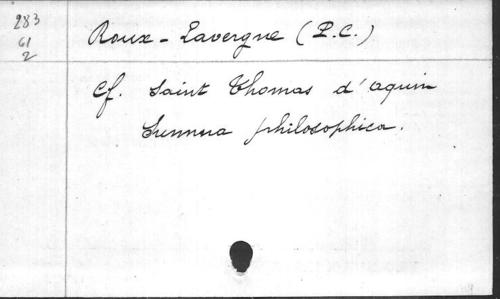 283
61
2
Roux-Lavergne (P.C.)
Cf. Saint Thomas d'aquin
Summa philosophica.